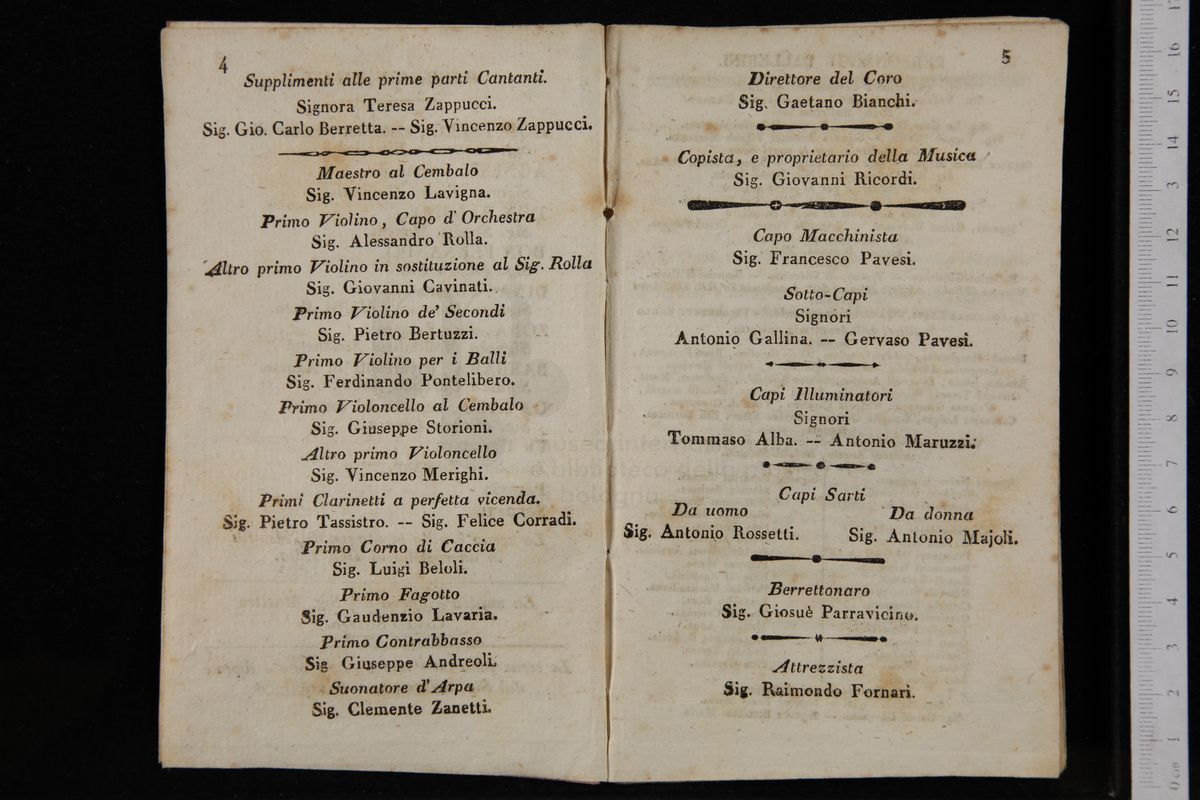 4
Supplimenti alle prime parti Cantanti.
Signora Teresa Zappucci.
Sig. Gio. Carlo Berretta. -- Sig. Vincenzo Zappucci.
Maestro al Cembalo
Sig. Vincenzo Lavigna.
Primo Violino, Capo d'Orchestra
Sig. Alessandro Rolla.
Altro primo Violino in sostituzione al Sig. Rolla
Sig. Giovanni Cavinati.
Primo Violino de' Secondi
Sig. Pietro Bertuzzi.
Primo Violino per i Balli
Sig. Ferdinando Pontelibero.
Primo Violoncello al Cembalo
Sig. Giuseppe Storioni.
Altro primo Violoncello
Sig. Vincenzo Merighi.
Primi Clarinetti a perfetta vicenda.
Sig. Pietro Tassistro. -- Sig. Felice Corradi.
Primo Corno di Caccia
Sig. Luigi Beloli.
Primo Fagotto
Sig. Gaudenzio Lavaria.
Primo Contrabbasso
Sig Giuseppe Andreoli.
Suonatore d'Arpa
Sig. Clemente Zanetti.
5
Direttore del Coro
Sig. Gaetano Bianchi.
Copista, e proprietario della Musica
Sig. Giovanni Ricordi.
Capo Macchinista
Sig. Francesco Pavesi.
Sotto-Capi
Signori
Antonio Gallina. -- Gervaso Pavesi.
Capi Illuminatori
Signori
Tommaso Alba. -- Antonio Maruzzi.
Capi Sarti
Da uomo Da donna
Sig. Antonio Rossetti. Sig. Antonio Majoli.
Berrettonaro
Sig. Giosuè Parravicino.
Attrezzista
Sig. Raimondo Fornari.